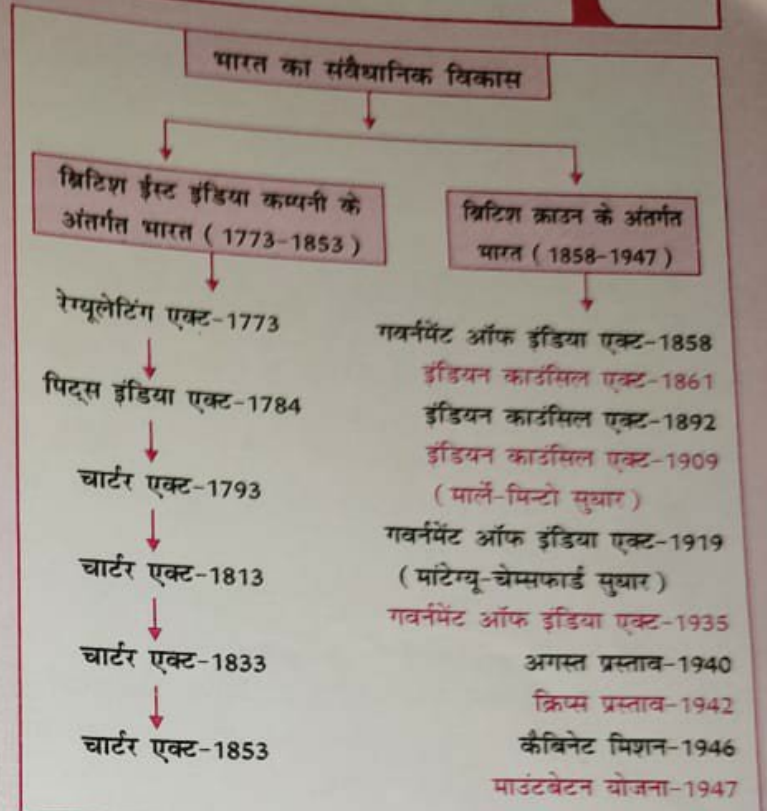 भारत का संवैधानिक विकास
ब्रिटिश ईस्ट इंडिया कम्पनी के
अंतर्गत भारत ( 1773-1853 )
रेग्यूलेटिंग एक्ट-1773
पिट्स इंडिया एक्ट-1784
चार्टर एक्ट-1793
चार्टर एक्ट-1813
चार्टर एक्ट-1833
चार्टर एक्ट-1853
ब्रिटिश क्राउन के अंतर्गत
भारत ( 1858-1947 )
गवर्नमेंट ऑफ इंडिया एक्ट-1858
इंडियन काउंसिल एक्ट-1861
इंडियन काउंसिल एक्ट-1892
इंडियन काउंसिल एक्ट-1909
( मार्ले-मिन्टो सुधार )
गवर्नमेंट ऑफ इंडिया एक्ट-1919
( मांटेग्यू-चेम्सफार्ड सुधार )
गवर्नमेंट ऑफ इंडिया एक्ट-1935
अगस्त प्रस्ताव-1940
क्रिप्स प्रस्ताव-1942
कैबिनेट मिशन-1946
माउंटबेटन योजना-1947